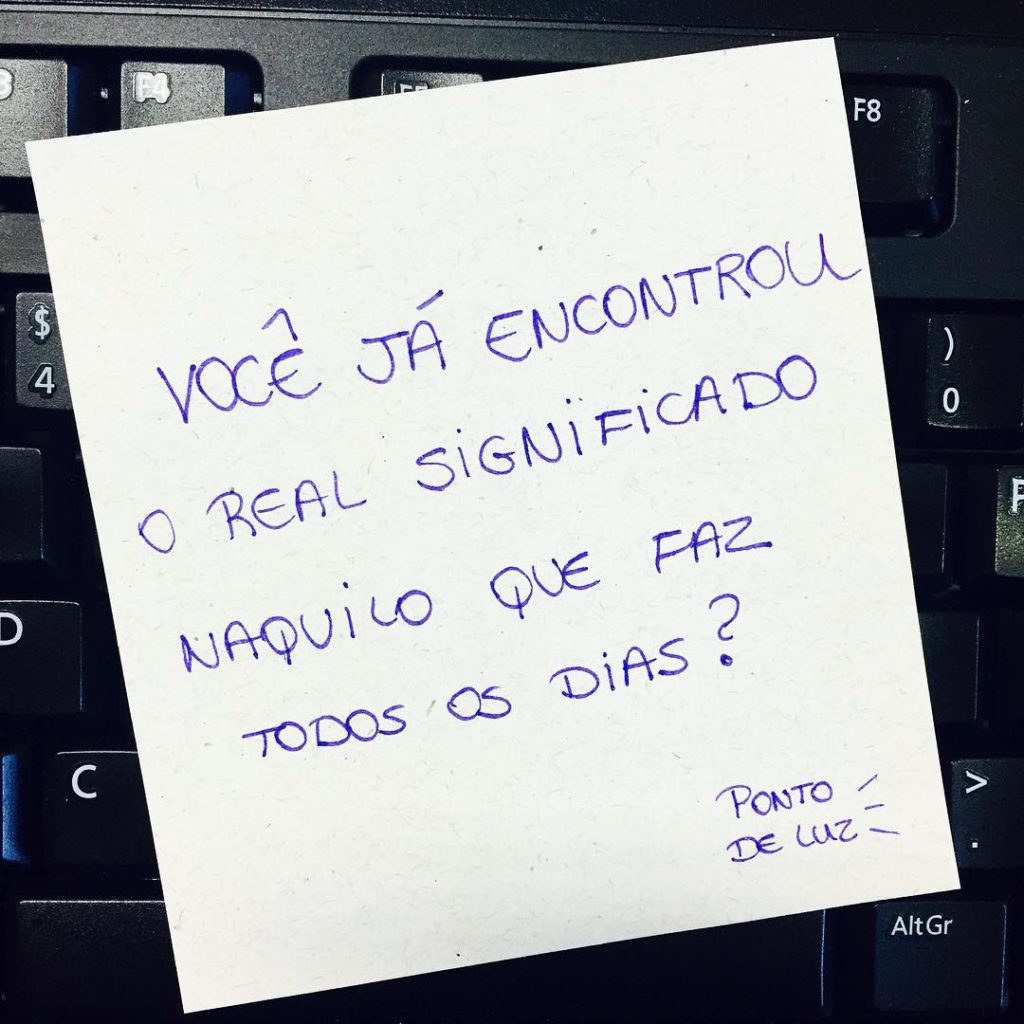 F4
F8
$
4
)
0
VOCÊ JÁ ENCONTROU
O REAL SIGNIFICADO
NAQUILO QUE FAZ
TODOS OS DIAS?
PONTO
DE LUZ
D
C
>
.
AltGr